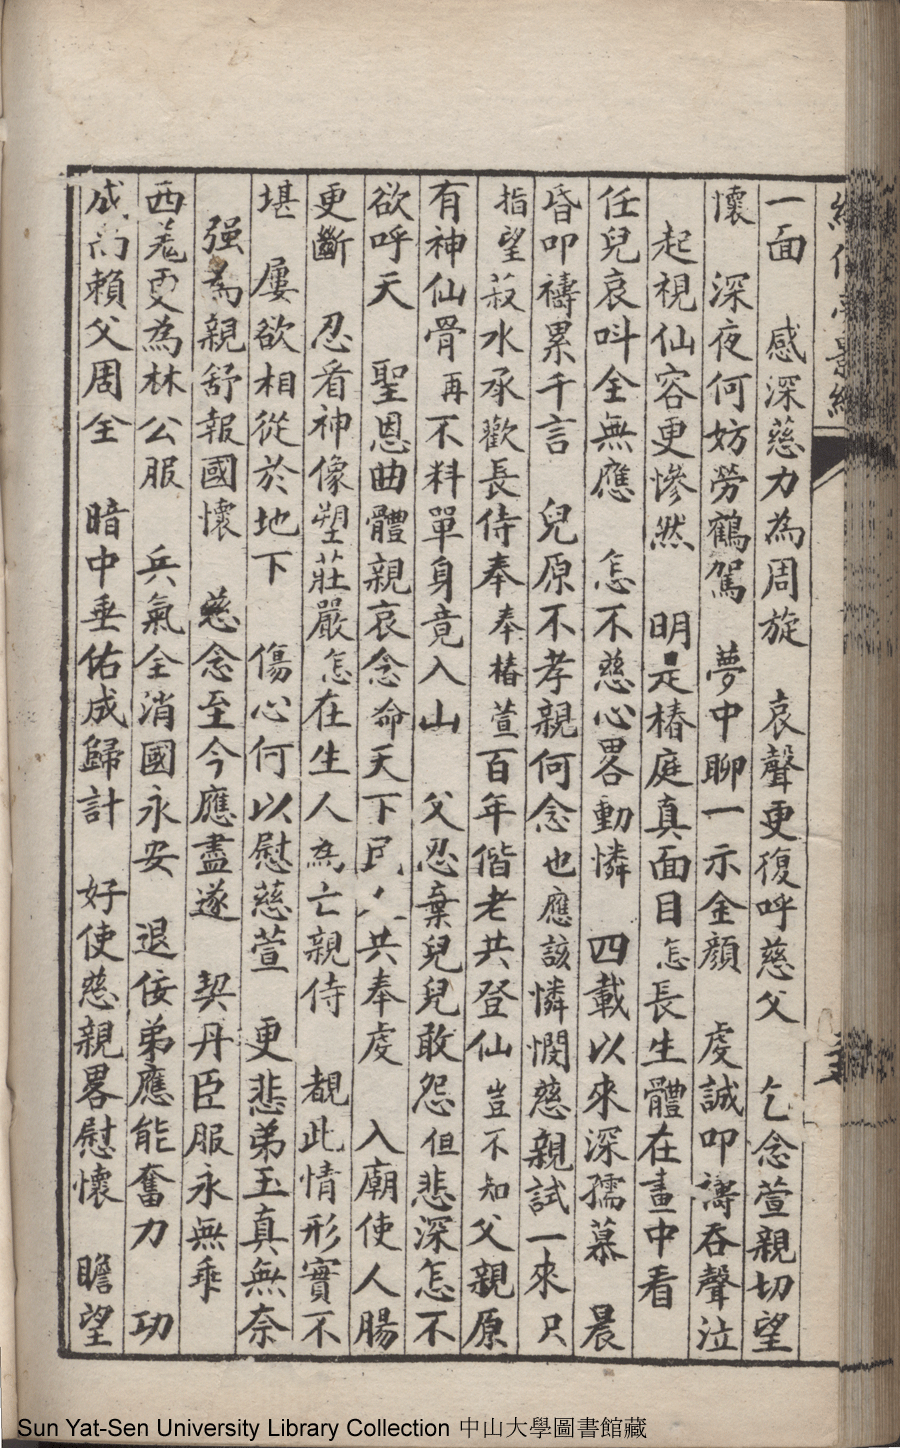 一面　感深慈力為周旋　哀聲更復呼慈父　乞念萱親切望
懷　深夜何妨勞鶴駕　夢中聊一示金顏　虔誠叩禱吞聲泣
起視仙容更慘然　明是椿庭真面目怎長生體在畫中看
任兒哀呌全無應　怎不慈心畧動憐　四載以來深孺慕　晨
昏叩禱累千言　兒原不孝親何念也應該憐憫慈親試一來只
指望菽水承歡長侍奉奉椿萱百年偕老共登仙豈不知父親原
有神仙骨再不料單身竟入山　父忍棄兒兒敢怨但悲深怎不
欲呼天　聖恩曲體親哀念命天下民人共奉虔　入廟使人腸
更斷　忍看神像塑莊嚴怎在生人為亡親侍　覩此情形實不
堪　屢欲相從於地下　傷心何以慰慈萱　更悲弟玉真無奈
强為親舒報國懷　慈念至今應盡遂　契丹臣服永無乖
西羗更為林公服　兵氣全消國永安　退佞弟應能奮力　功
成尚賴父周全　暗中垂佑成歸計　好使慈親畧慰懷　瞻望
Sun Yat-Sen University Library Collection 中山大學圖書館藏